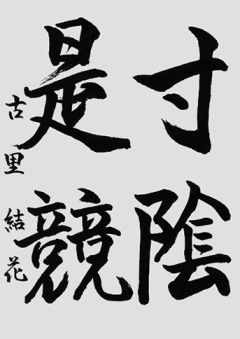 寸陰
是競
古里結花